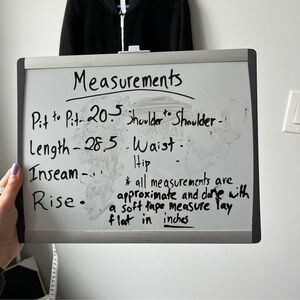 Measurements
Pit to Pit- 20.5 Shoulder to Shoulder -
Length - 28.5 Waist -
Hip
Inseam -
Rise -
* all measurements are
approximate and done with
a soft tape measure lay
flat in inches